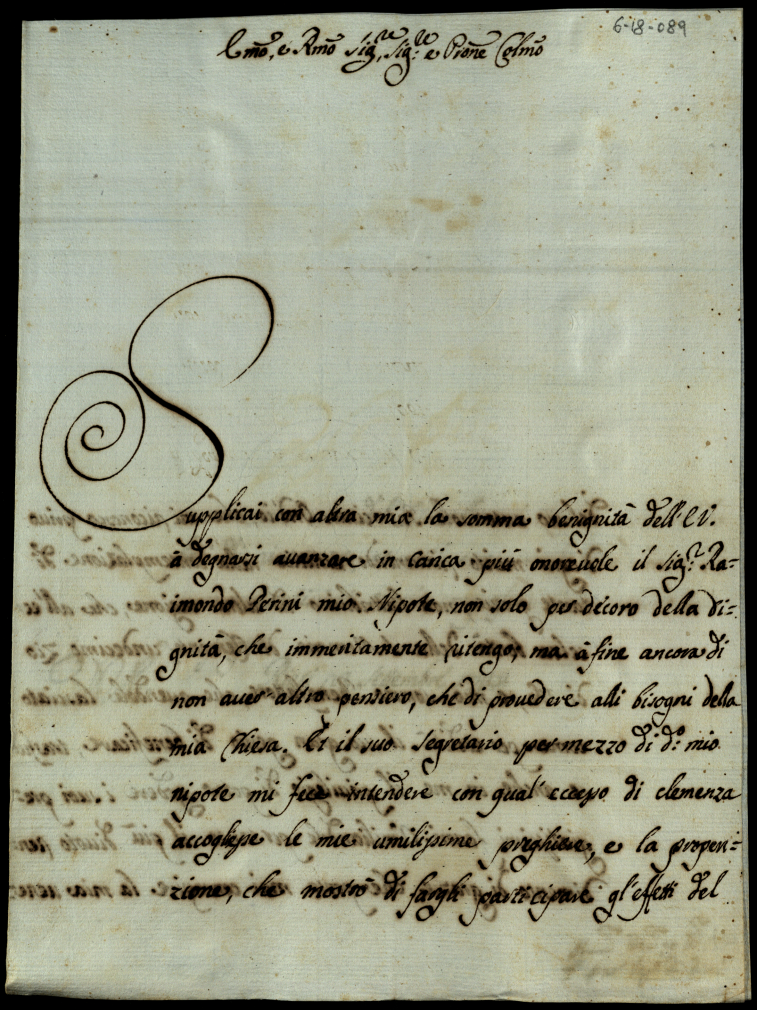 6-18-089
Emo, e Rmo Sigre, Sigre e Prone Colmo
Supplicai con altra mia la somma benignità dell'EV.
à degnarsi auanzare in carica più onoreuole il Sigr Ra=
imondo Perini mio Nipote, non solo per decoro della di=
gnità, che immeritamente ritengo, ma à fine ancora di
non auer altro pensiero, che di prouedere alli bisogni della
mia Chiesa. Et il suo segretario per mezzo di do mio
nipote mi fece intendere con qual eccesso di clemenza
accogliesse le mie umilissime preghiere, e la propen=
zione, che mostrò di fargli participare gl'effetti del